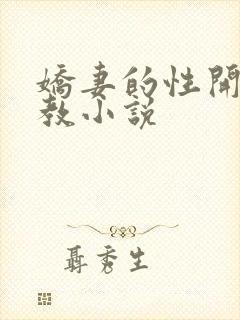 嬌妻的性開
教小説
聶秀生